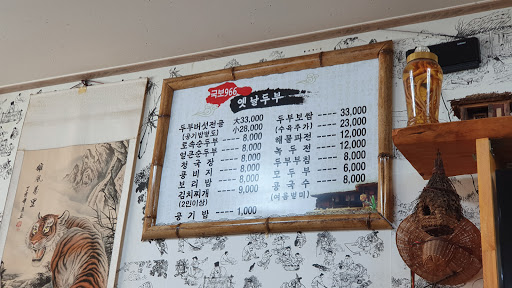 국보966
옛날두부
두부버섯전골 大33,000
(공기밥별도) 小28,000
토속순두부 ---- 8,000
얼큰순두부 ---- 8,000
청국장 ---- 8,000
콩비지 ---- 8,000
보리밥 ---- 8,000
김치찌개 ---- 9,000
(2인이상)
공기밥 ---- 1,000
두부보쌈 ---- 33,000
(수육추가) ---- 23,000
해물파전 ---- 12,000
녹두전 ---- 12,000
두부부침 ---- 8,000
모두부 ---- 6,000
콩국수 ---- 8,000
(여름별미)